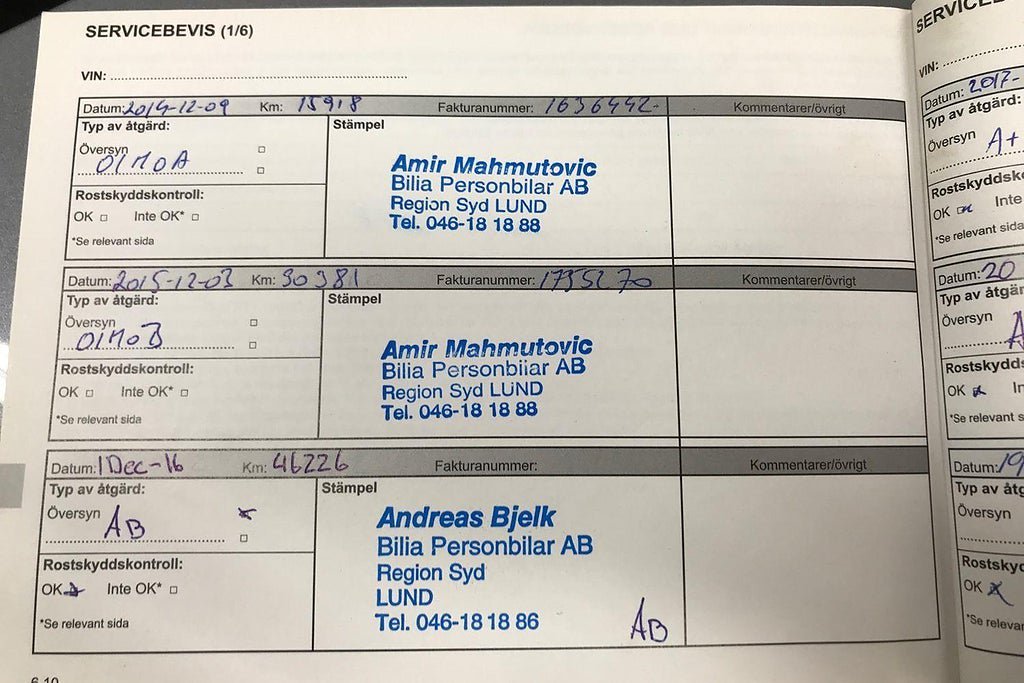 SERVICEBEVIS (1/6)
VIN:
Datum: 2014-12-09 Km: 15918 Fakturanummer: 1636442- Kommentarer/övrigt
Typ av åtgärd: Stämpel
Översyn
01M0A
Rostskyddskontroll:
OK Inte OK*
*Se relevant sida
Amir Mahmutovic
Bilia Personbilar AB
Region Syd LUND
Tel. 046-18 18 88
Datum: 2015-12-03 Km: 30381 Fakturanummer: 1735270 Kommentarer/övrigt
Typ av åtgärd: Stämpel
Översyn
01M0B
Rostskyddskontroll:
OK Inte OK*
*Se relevant sida
Amir Mahmutovic
Bilia Personbilar AB
Region Syd LUND
Tel. 046-18 18 88
Datum: 1 Dec-16 Km: 46226 Fakturanummer: Kommentarer/övrigt
Typ av åtgärd: Stämpel
Översyn
AB
Rostskyddskontroll:
OK Inte OK*
*Se relevant sida
Andreas Bjelk
Bilia Personbilar AB
Region Syd
LUND
Tel. 046-18 18 86
AB
6-10
VIN:
Datum: 2017-
Typ av åtgärd:
Översyn
A+
OK Inte
*Se relevant sida
Datum: 20
Översyn
OK
*Se relevant sida
Datum: 19
Översyn
OK